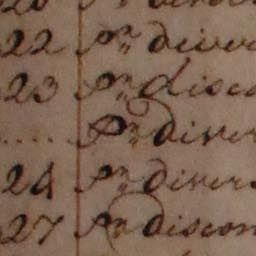 22 Pr diver
23 Pr disco
..... Pr diver
24 Pr divers
27 Pr discon